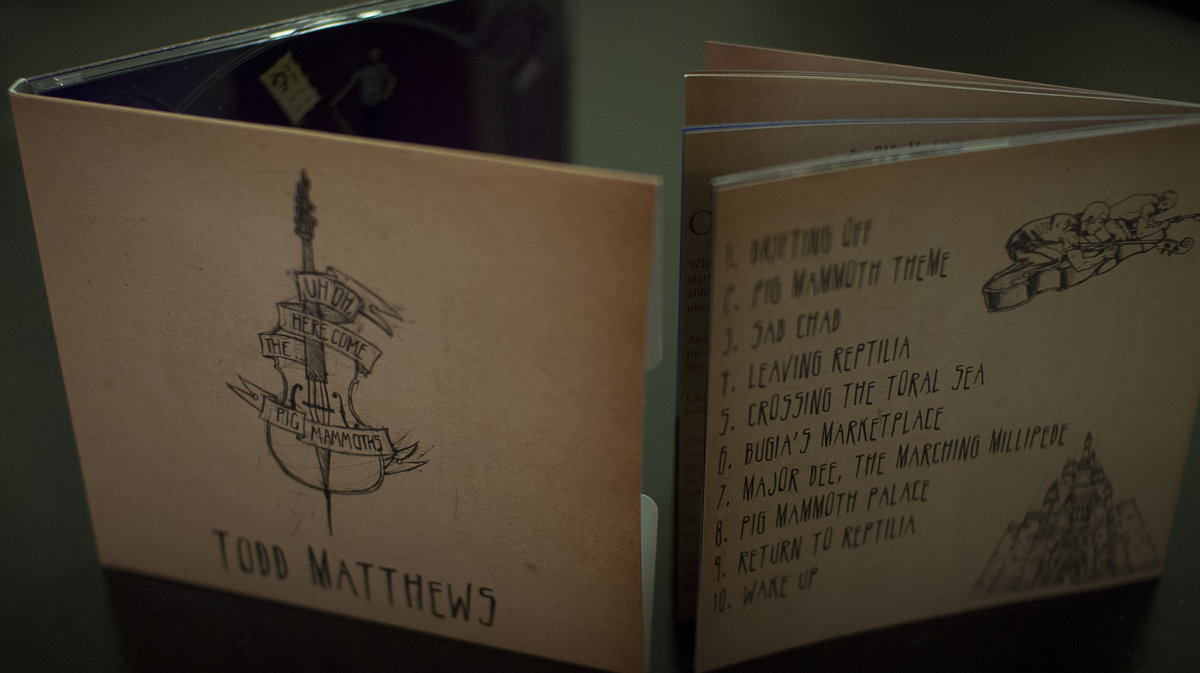 UH OH
HERE COME
THE...
PIG MAMMOTHS
TODD MATTHEWS
1. DRIFTING OFF
2. PIG MAMMOTH THEME
3. SAD CHAD
4. LEAVING REPTILIA
5. CROSSING THE TORAL SEA
6. BUGIA'S MARKETPLACE
7. MAJOR DEE, THE MARCHING MILLIPEDE
8. PIG MAMMOTH PALACE
9. RETURN TO REPTILIA
10. WAKE UP